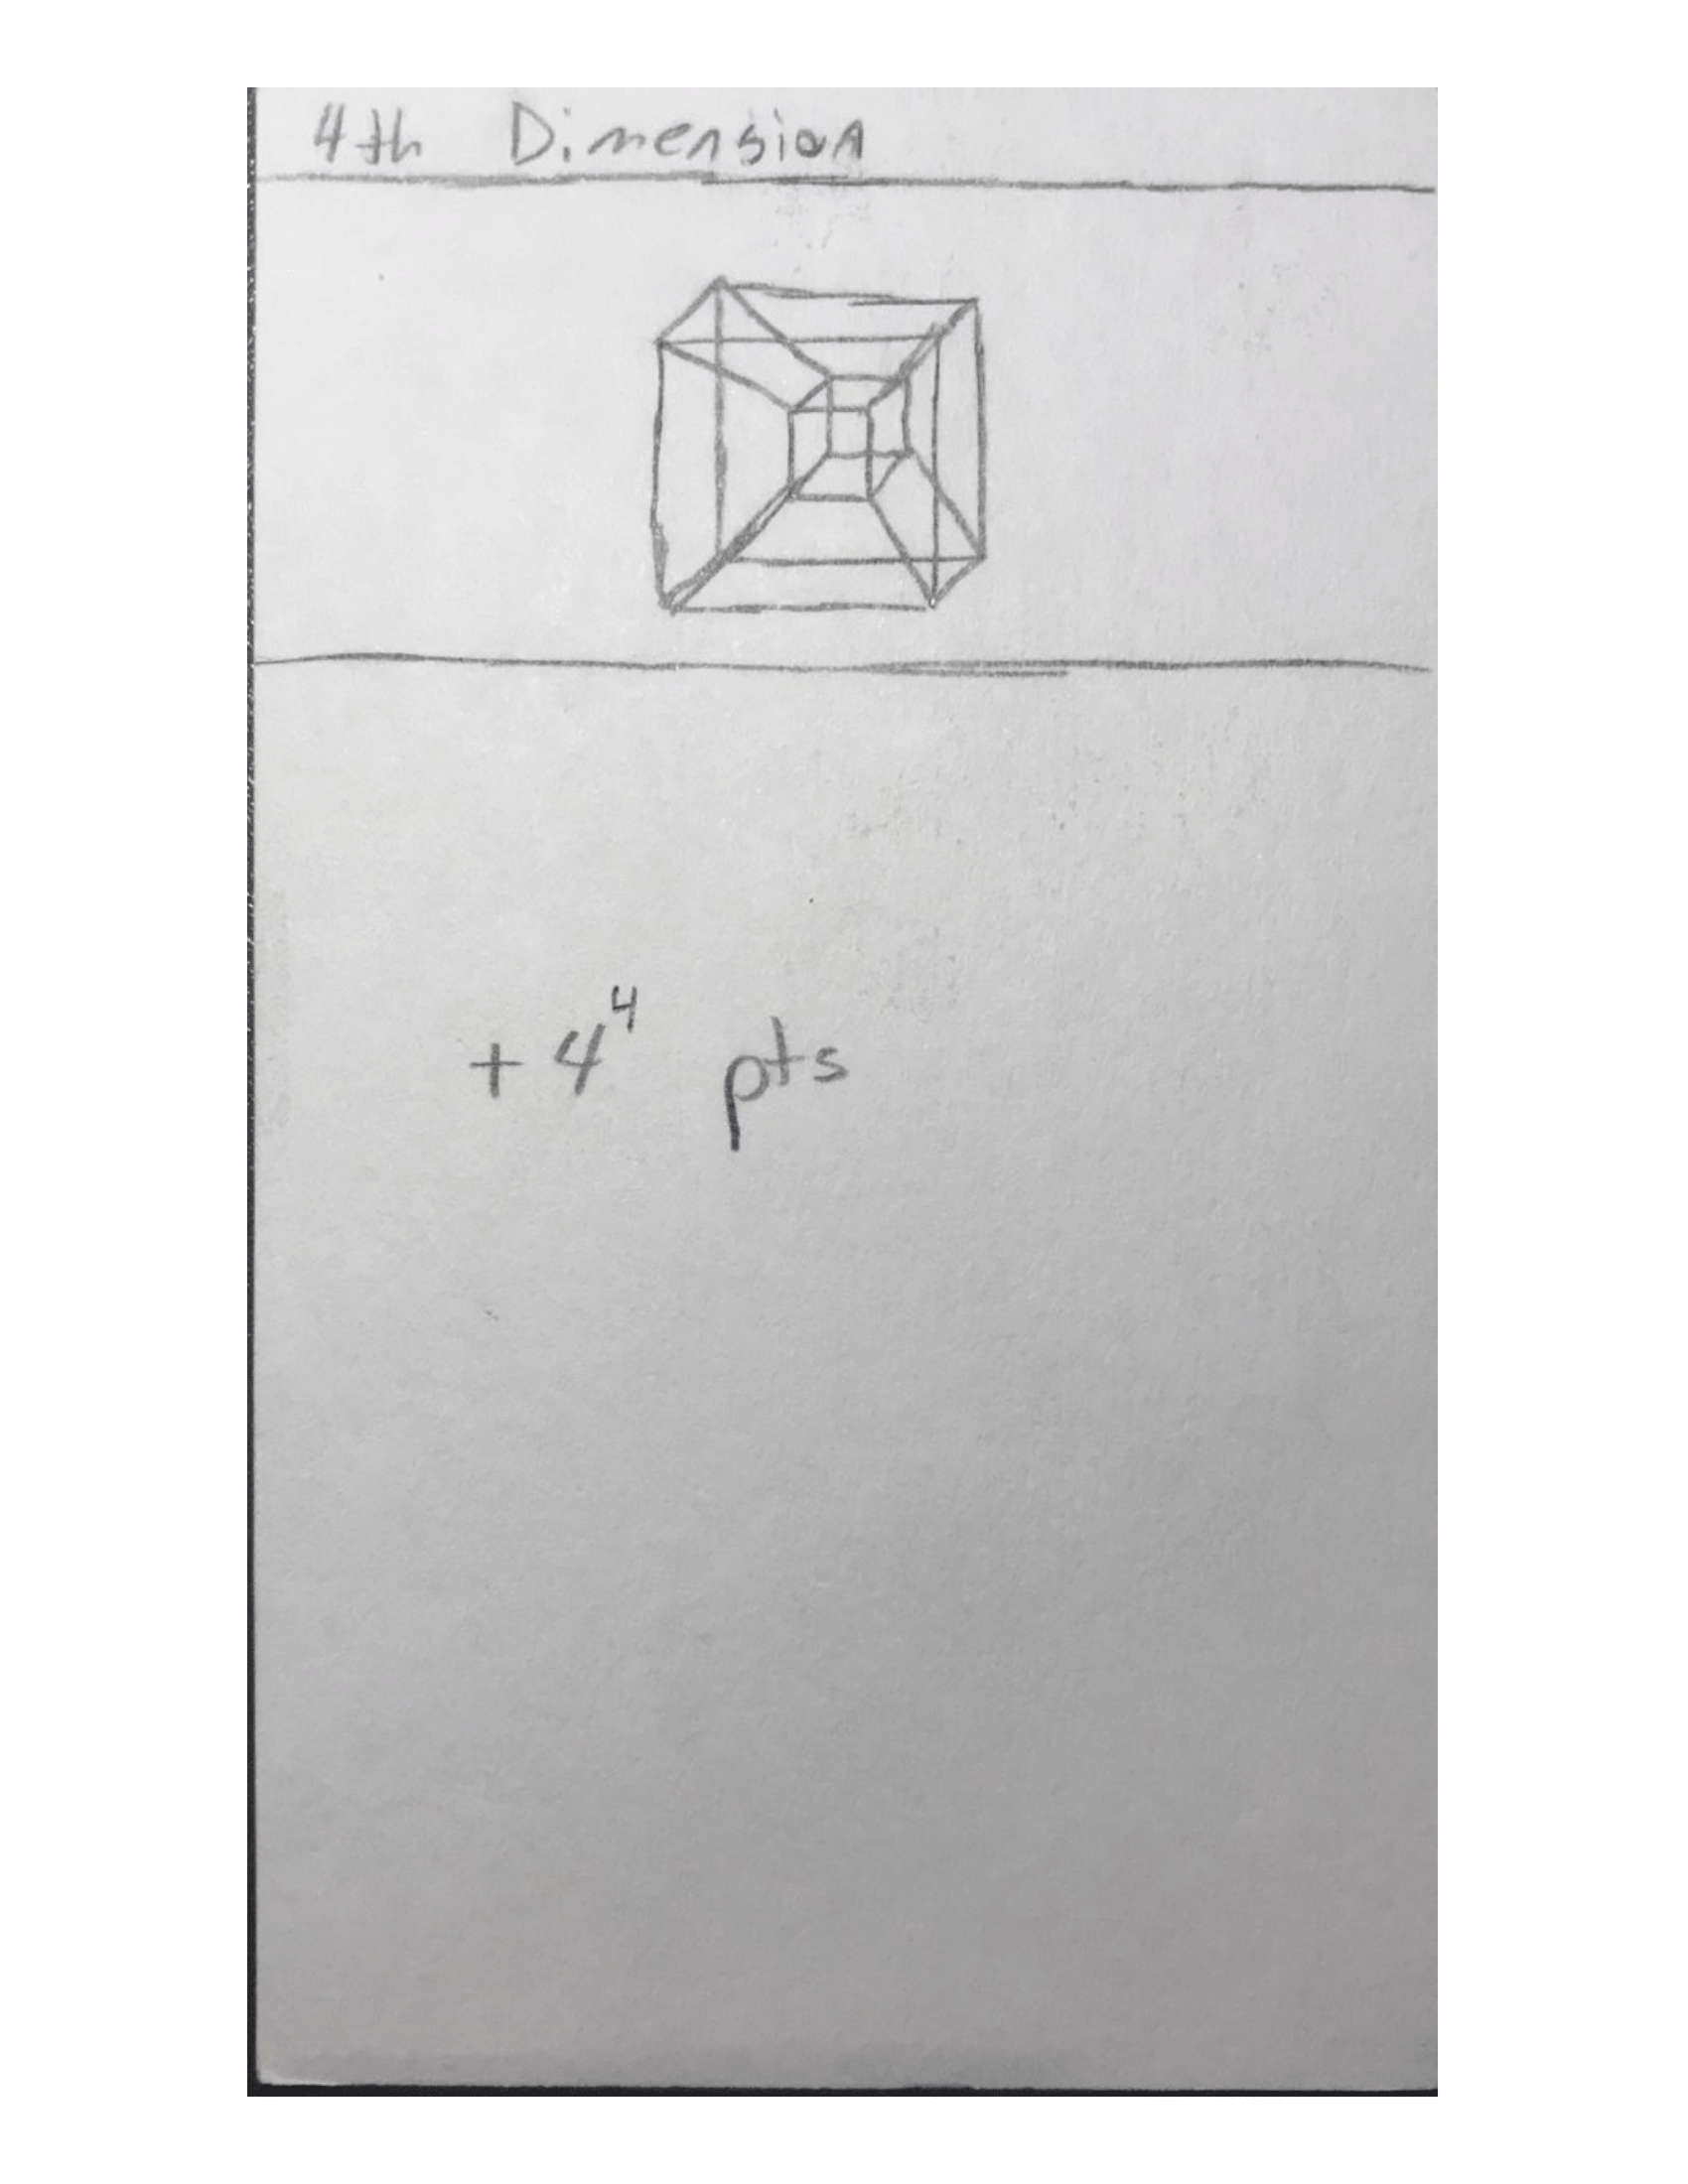 4th Dimension
+ 4⁴ pts